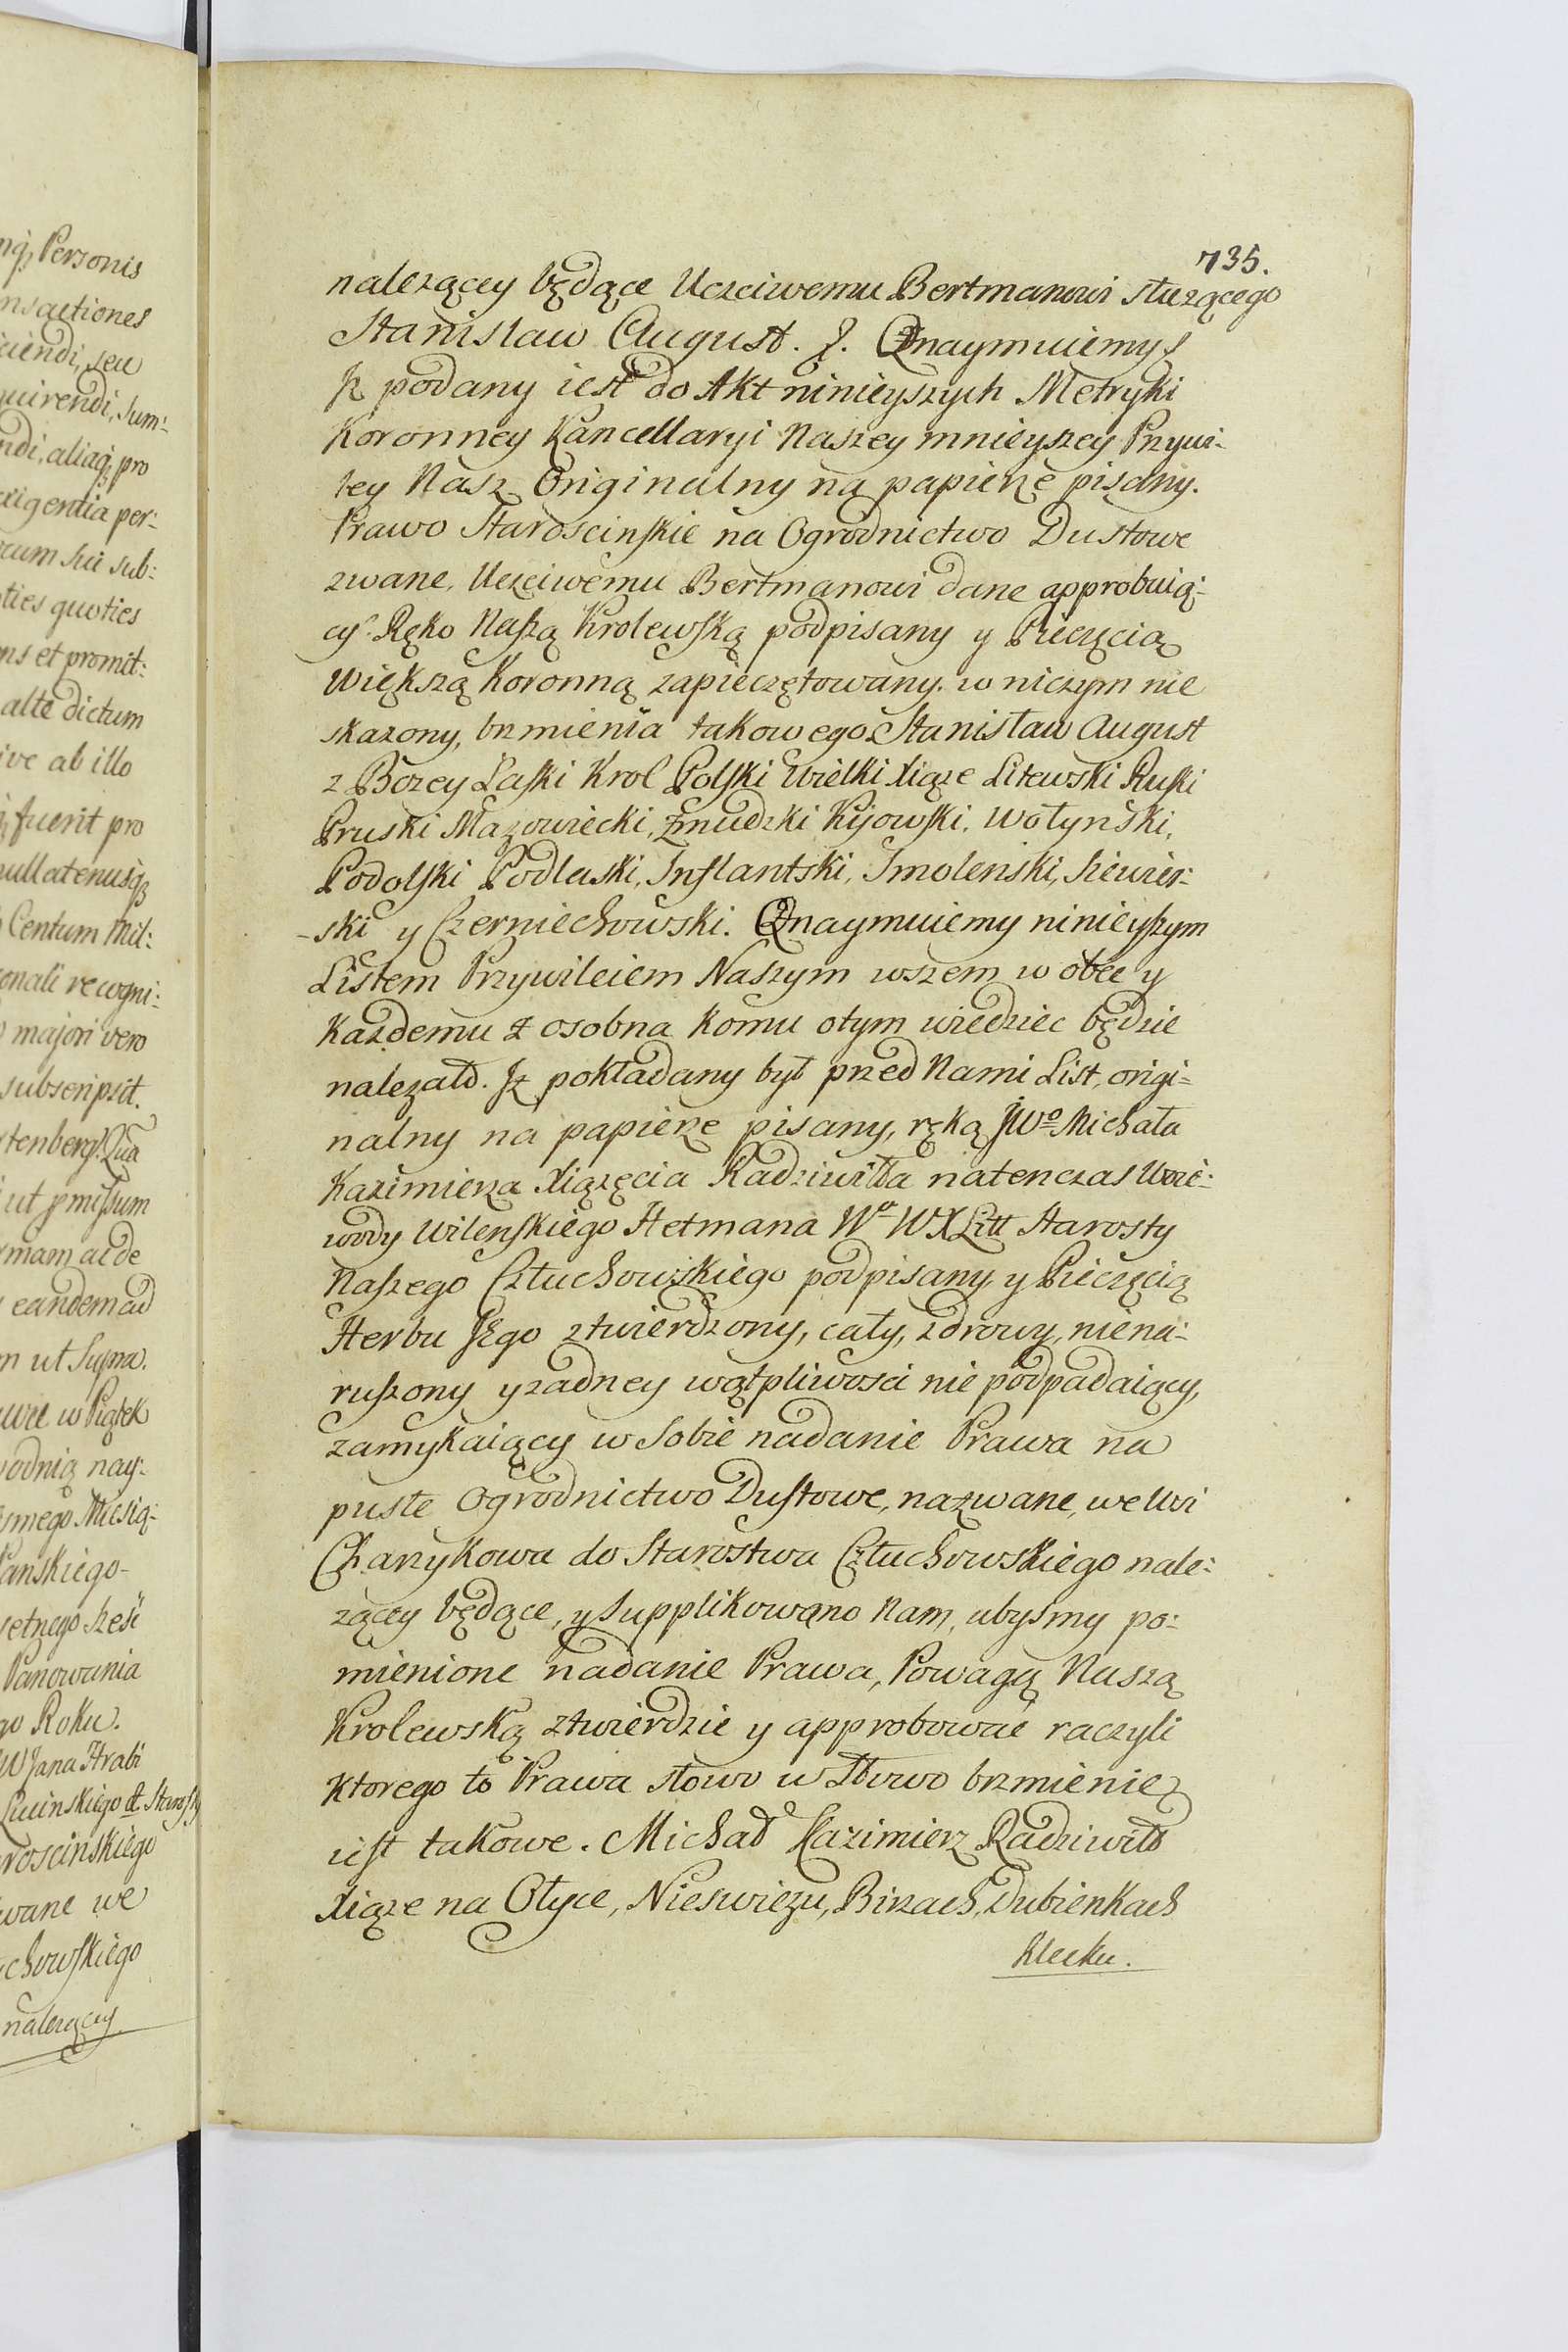 nią, Personis
nsactiones
iendi, seu
uirendi, Sum:
ndi, aliaq, pro
exigentia per:
cum sui sub:
ties quoties
ns et promit:
alte dictum
ive ab illo
fuerit pro
nullatenusq
Centum Mil:
onali recogni:
majori vero
subscripsit.
rtenberg. Qua
ut pmissum
mam ac de
eandem ad
m ut Supra.
wie w Piątek
odnią nay:
smego Miesią:
Panskiego-
setnego sześć
Panowania
go Roku.
W Jana Hrabi
Lwinskiego & Starosty
roscinskiego
wane we
chowskiego
nalezącey
735.
nalezącey będące Uczciwemu Bertmanowi słuzącego
Stanislaw August. Oznaymuiemy
Iz podany iest do Akt ninieyszych Metryki
Koronney Kancellaryi Naszey mnieyszey Przywi:
ley Nasz Originalny na papierze pisany.
Prawo Staroscinskie na Ogrodnictwo Dustowe
zwane, Uczciwemu Bertmanowi dane approbuią:
cy. Ręko Naszą Krolewską podpisany y Pieczęcią
Większą Koronną zapieczętowany. w niczym nie
skazony, brzmienia takowego. Stanisław August
z Bozey Łaski Krol Polski Wielki Xiąze Litewski Ruski
Pruski Mazowiecki, Zmudzki Kijowski, Wołyński,
Podolski Podlaski, Inflantski, Smolenski, Siewier:
-ski y Czerniechowski. Oznaymuiemy ninieyszym
Listem Przywileiem Naszym wszem w obec y
Kazdemu z osobna Komu otym wiedziec będzie
nalezało. Iz pokładany był przed Nami List, origi=
nalny na papierze pisany, ręką JWo Michała
Kazimierza Xiązęcia Radziwiłła natenczas Woie:
wody Wilenskiego Hetmana Wo WXLitt Starosty
Naszego Człuchowskiego podpisany, y Pieczęcią
Herbu Jego ztwierdzony, cały, zdrowy, niena:
ruszony y zadney wątpliwosci nie podpadaiący,
zamykaiący w Sobie nadanie Prawa na
puste Ogrodnictwo Dustowe, nazwane, we Wsi
Charzykowa do Starostwa Człuchowskiego nale:
zącey będące, y supplikowano Nam, abysmy po:
mienione nadanie Prawa, Powagą Naszą
Krolewską ztwierdzie y approbować raczyli
Ktorego to Prawa słowo w Słowo brzmienie
iest takowe. Michał Kazimierz Radziwiłł
Xiąze na Ołyce, Nieswiezu, Birzach, Dubienkach
Klecku.